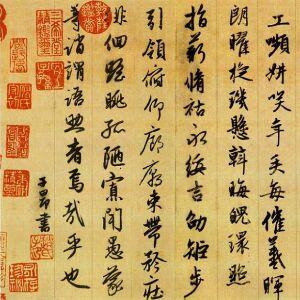 工嚬妍咲年矢每催羲暉
朗曜旋璣懸斡晦魄環照
指薪脩祜永綏吉劭矩步
引領俯仰廊廟束帶矜莊
徘徊瞻眺孤陋寡聞愚蒙
等誚謂語助者焉哉乎也
子昂書